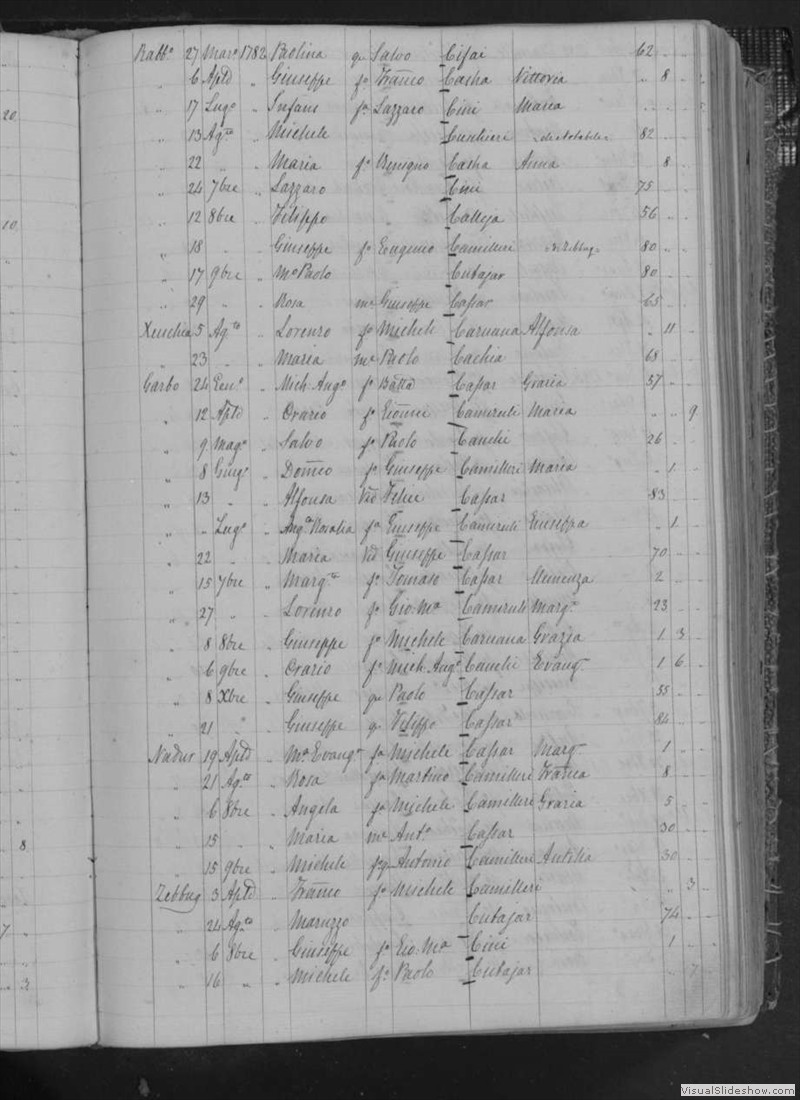 20.
10.
8
7
3
Rabbo 27 Maro 1782 Paolina qm Salvo Cifai 62
" 6 Aple " Giuseppe fo Franco Casha Vittoria " 8
" 17 Lugo " Infans fo Lazzaro Cini Maria
" 13 Agto " Michele 82
" 22 " " Maria fa Benigno Casha Anna 8
" 24 7bre " Lazzaro Cini 75
" 12 8bre " Filippo " Calleja 56
" 18 " " Giuseppe fo Eugenio Camilleri 80
" 17 9bre " Mo Paolo Cutajar 80
" 29 " " Rosa me Giuseppe Cassar 65
Xeuchia 5 Agto " Lorenzo fo Michele Caruana Alfonsa " 11
" 23 " Maria me Paolo Cachia 68
Garbo 24 Geno " Mich: Ango fo Batta Cassar Grazia 57
" 12 Aple " Orazio fo Camiruti Maria " " 9
" 9 Mago " Salvo fo Paolo Cauchi 26
" 8 Giugo " Domco fo Giuseppe Camilleri Maria " 1
" 13 " " Alfonsa Va Felice Cassar 83
" " Lugo " Anga Rosalia fa Giuseppe Camiruti Giuseppa " 1
" 22 " " Maria Va Giuseppe Cassar 70
" 15 7bre " Marga fa Tomaso Cassar 2
" 27 " " Lorenzo fo Gio: Ma Camiruti Marga 23
" 8 8bre " Giuseppe fo Michele Caruana Grazia 1 3
" 6 9bre " Orazio fo Mich: Ango Cauchi Evanga 1 6
" 8 Xbre " Giuseppe qm Paolo Cassar 55
" 21 " " Giuseppe qm Filippo Cassar 84
Nadur 19 Aple " Ma Evanga fa Michele Cassar Marga 1
" 21 Agto " Rosa fa Martino Camilleri Franca 8
" 6 8bre " Angela fa Michele Camilleri Grazia 5
" 15 " " Maria me Anto Cassar 30
" 15 9bre " Michele Antonio Camilleri 30
Zebbug 3 Aple " Franco fo Michele Camilleri " 3
" 24 Agto " Maruzzo Cutajar 74
" 6 8bre " Giuseppe fo Gio: Ma Cini 1
" 16 " " Michele fo Paolo Cutajar " 7
VisualSlideshow.com